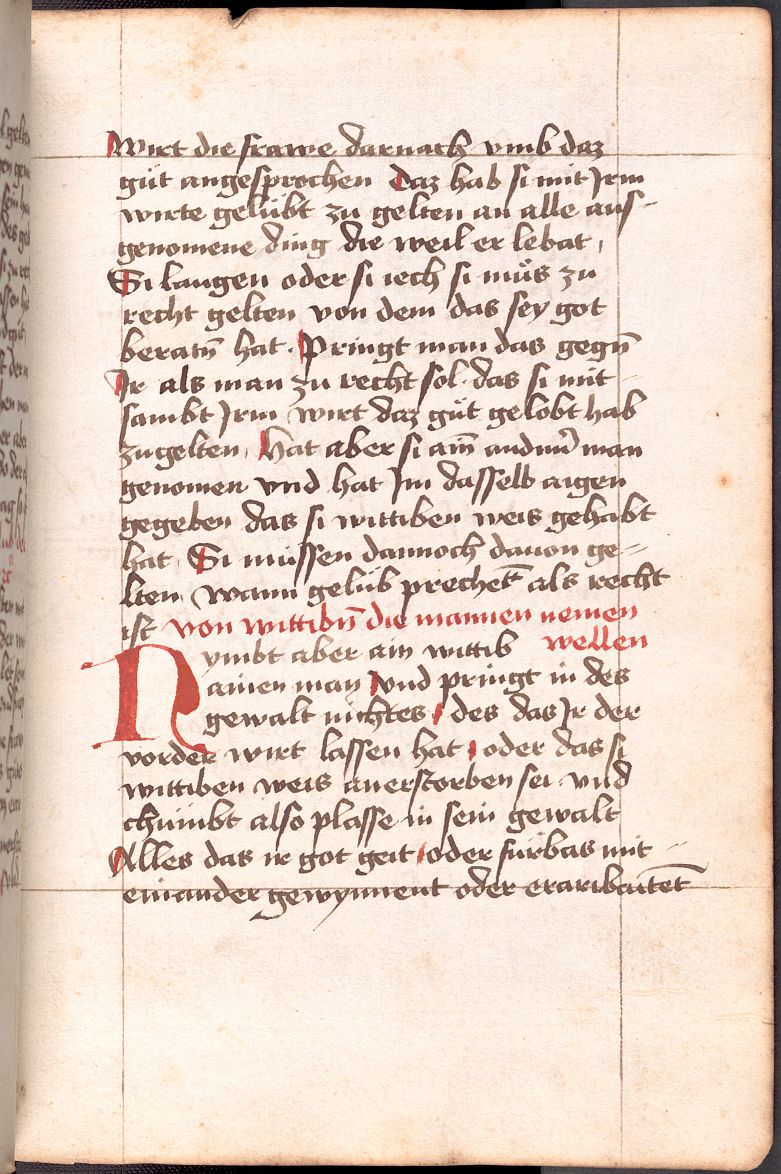 Wirt die frawe darnach vmb daz
güt angesprochen daz hab si mit Irm
wirte gelübt zu gelten an alle aus-
genomene ding die weil er lebat,
Si laugen oder si iech si müs zu
recht gelten von dem das sey got
beratn̄ hat. Pringt man das gegn̄
Ir als man zu recht sol. das si mit
sambt Irm wirt daz güt gelobt hab
zugelten, Hat aber si ain̄ andnn̄ man
genomen vnd hat Im dasselb aigen
gegeben das si wittiben weis gehabt
hat, Si müssen dannoch dauon ge-
lten, wann gelüb prechet als recht
ist von wittibn̄ die mannen nemen
wellen
Nymbt aber ain wittib
ainen man vnd pringt in des
gewalt nichtes, des das Ir der
vorder wirt lassen hat, oder das si
wittiben weis anerstorben sei vnd
chümbt also plasse in sein gewalt
Alles das ir got geit, oder fürbas mit
einander gewynnent oder eraribaitet